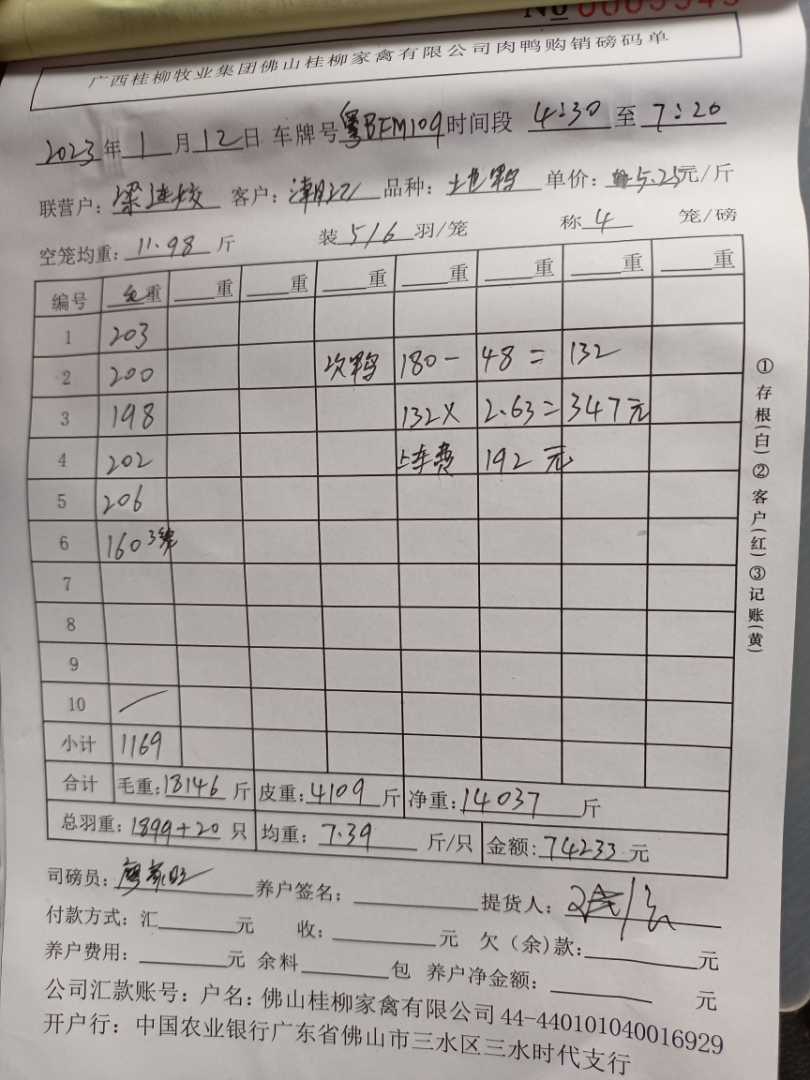 广西桂柳牧业集团佛山桂柳家禽有限公司肉鸭购销磅码单
2023年1月12日 车牌号粤BFM109时间段 4:30至7:20
联营户: 客户: 潮汕 品种: 土鸭 单价: 5.25元/斤
空笼均重: 11.98斤 装5/6羽/笼 称4笼/磅
编号 毛重 重 重 重 重 重 重 重
1 203
2 200 次鸭 180- 48= 132
3 198 132× 2.63= 347元
4 202 上车费 192元
5 206
6 160 3笼
7
8
9
10
小计 1169
合计 毛重:18146斤 皮重:4109斤 净重:14037斤
总羽重: 1899+20只 均重: 7.39斤/只 金额: 74233元
司磅员: 养户签名: 提货人:
付款方式: 汇 元 收: 元 欠(余)款: 元
养户费用: 元 余料 包 养户净金额: 元
公司汇款账号: 户名: 佛山桂柳家禽有限公司 44-440101040016929
开户行: 中国农业银行广东省佛山市三水区三水时代支行
①存根(白)②客户(红)③记账(黄)